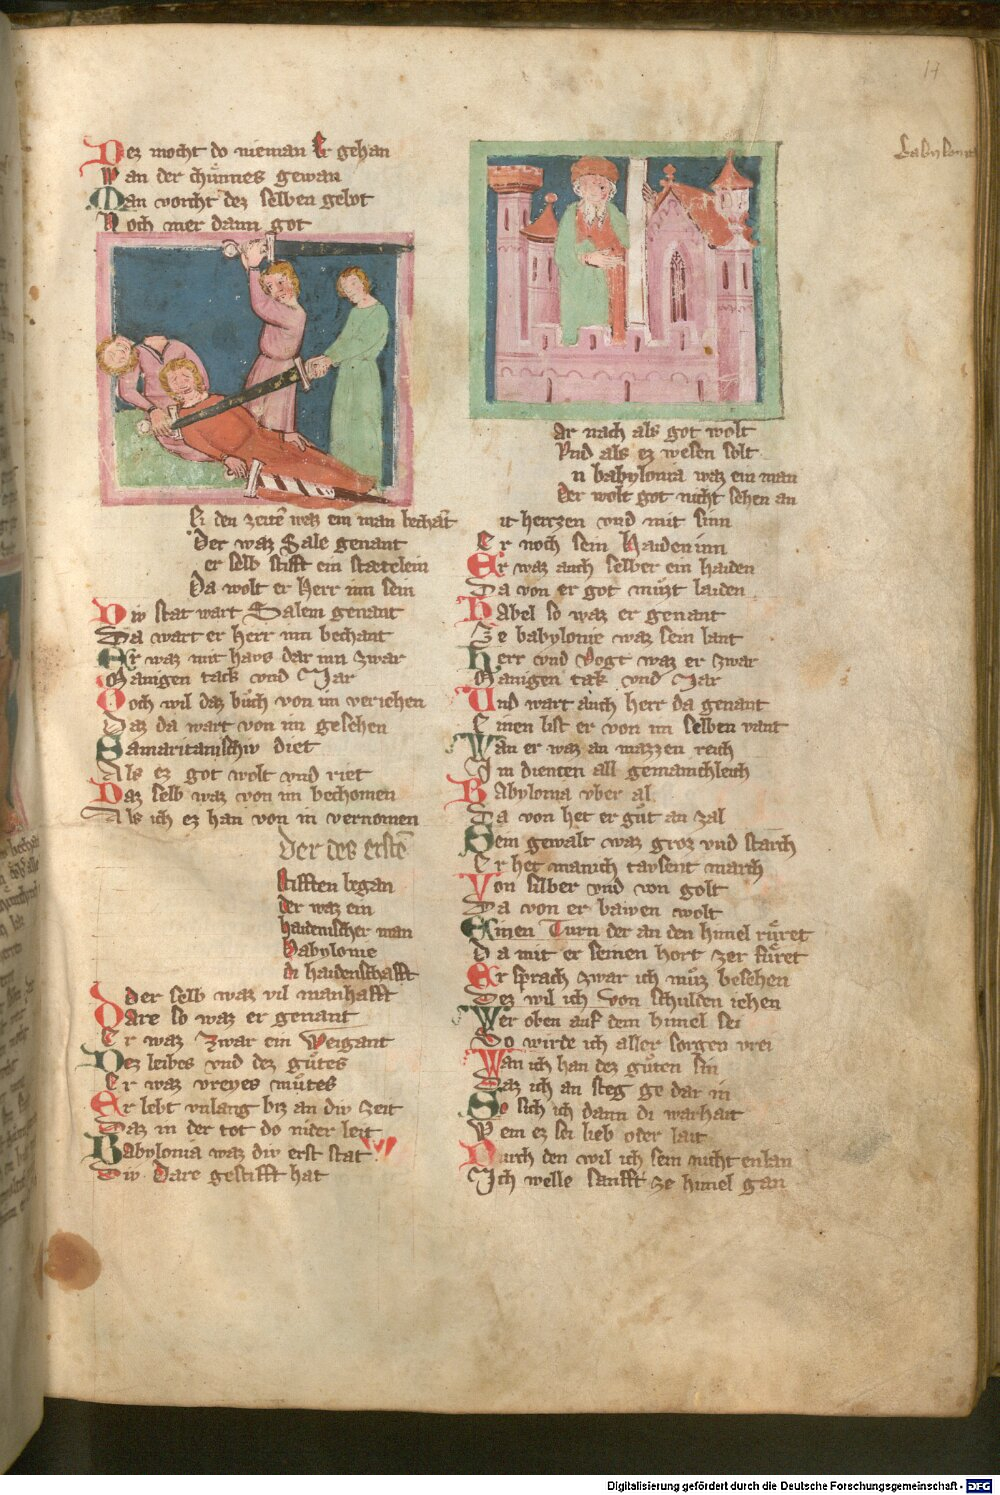 17
babylonia
Dez mocht do nieman Er gehan
Wan der chunnes gewan
Man vorcht dez selben gebot
Noch mer dann got
Bei den zeitē waz ein man bechāt
Der waz Sale genant
er selb stifft ein stætelein
Da wolt er Herr inn sein
Div stat wart Salem genant
Da wart er herr inn bechant
Er waz mit havs dar inn zwar
Manigen tack vnd Jar
Doch wil daz bůch von im veriehen
Daz da wart von im gesehen
Samaritanischiv diet
Als ez got wolt vnd riet
Daz selb waz von im bechomen
Als ich ez han von in vernomen
Der des erstē
stifften began
der waz ein
haidenischer man
Babylonie
di haidenschafft
der selb waz vil manhafft
Dare so waz er genant
Er waz zwar ein Weigant
Dez leibes vnd dez gůtes
Er waz vreyes můtes
Er lebt vnlang biz an div zeit
Daz in der tot do nider leit
Babylonia waz div erst stat
Div Dare gestifft hat
Dar nach als got wolt
Vnd als ez wesen solt
in babylonia waz ein man
Der wolt got nicht sehen an
Mit herzen vnd mit sinn
Er noch sein Haideninn
Er waz auch selber ein haiden
Da von er got můzt laiden
Babel so waz er genant
Ze babylonie waz sein lant
Herr vnd Vogt waz er zwar
Manigen tak vnd Jar
Und wart auch herr da genant
Einen list er von im selben vant
Wan er waz an mazzen reich
Im dienten all gemainchleich
Babylonia vber al
Da von het er gůt an zal
Sein gewalt waz groz vnd starch
Er het manich tavsent march
Von silber vnd von golt
Da von er bawen wolt
Einen Turn der an den himel růret
Da mit er seinen hort zer fůret
Er sprach zwar ich můz besehen
Dez wil ich von schulden iehen
Wer oben auf dem himel sei
So wirde ich aller sorgen vrei
Wan ich han dez gůten sin
Daz ich an steg ge dar in
So sich ich dann di warhait
Wem ez sei lieb oder lait
Durch den wil ich sein nicht enlan
Ich welle sanfft ze himel gan
Digitalisierung gefördert durch die Deutsche Forschungsgemeinschaft - DFG